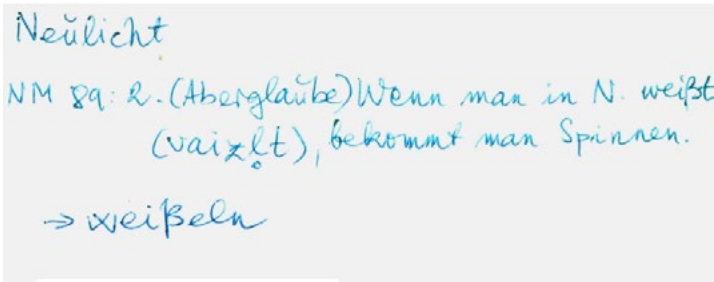 Neŭlicht
NM 8q: 2. (Aberglaŭbe) Wenn man in N. weißt
(vaizl̥t), bekommt man Spinnen.
→ weißeln